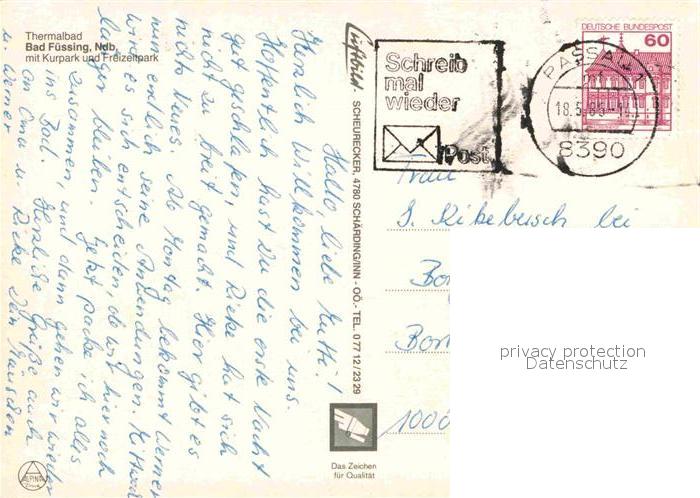 Thermalbad
Bad Füssing, Ndb,
mit Kurpark und Freizeitpark
Hallo liebe Mutti!
Herzlich Willkommen bei uns.
Hoffentlich hast Du die erste Nacht
gut geschlafen, und Rieke hat sich
nicht zu breit gemacht. Hier gibt es
nichts Neues. Ab Montag bekommt Werner
nun endlich seine Anwendungen. Mittwoch
wird es sich entscheiden, ob wir hier noch
länger bleiben. Jetzt packe ich alles
zusammen, und dann gehen wir wieder
ins Bad. Herzliche Grüße auch
an Oma u. Rieke
u. Werner
ALPINA
Druck
Luftbild
SCHEURECKER, 4780 SCHÄRDING/INN - OÖ.- TEL. 0 77 12 / 23 29
Das Zeichen
für Qualität
Schreib
mal
wieder
Post
PASSAU 1
18.5.
8390
DEUTSCHE BUNDESPOST
60
Frau
bei
1000
privacy protection
Datenschutz